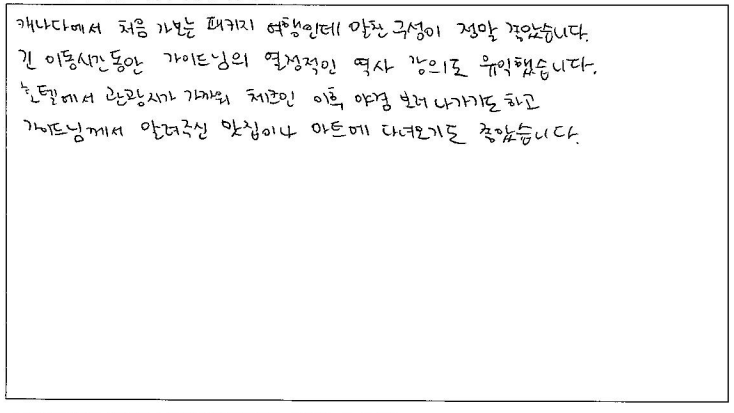 캐나다에서 처음 가보는 패키지 여행인데 알찬 구성이 정말 좋았습니다.
긴 이동시간동안 가이드님의 열정적인 역사 강의도 유익했습니다.
호텔에서 관광지가 가까워 체크인 이후 야경 보러 나가기도 하고
가이드님께서 알려주신 맛집이나 마트에 다녀오기도 좋았습니다.